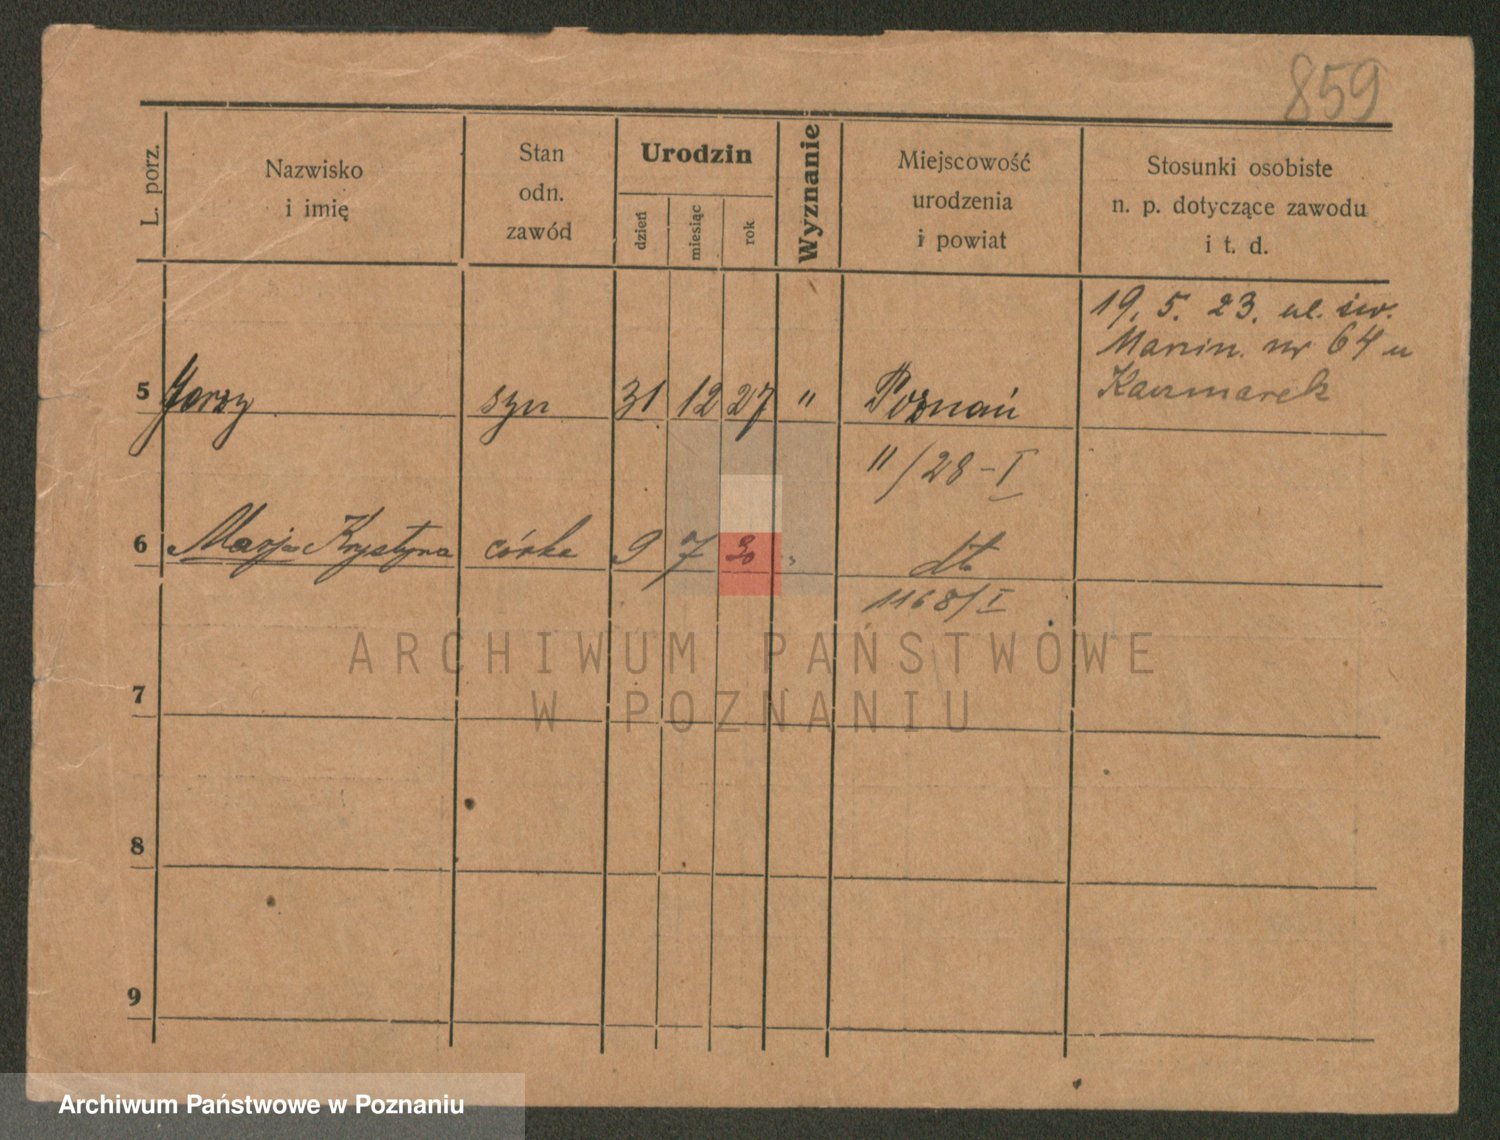 859
L. porz.
Nazwisko
i imię
Stan
odn.
zawód
Urodzin
dzień
miesiąc
rok
Wyznanie
Miejscowość
urodzenia
i powiat
Stosunki osobiste
n. p. dotyczące zawodu
i t. d.
19. 5. 23. ul. św.
Marcin. nr 64 u
Kaczmarek
5 Jerzy syn 31 12 27 " Poznań
"/28-I
6 Marja Krystyna córka 9 7 30 " dt
1168/I
7
8
9
ARCHIWUM PAŃSTWOWE
W POZNANIU
Archiwum Państwowe w Poznaniu